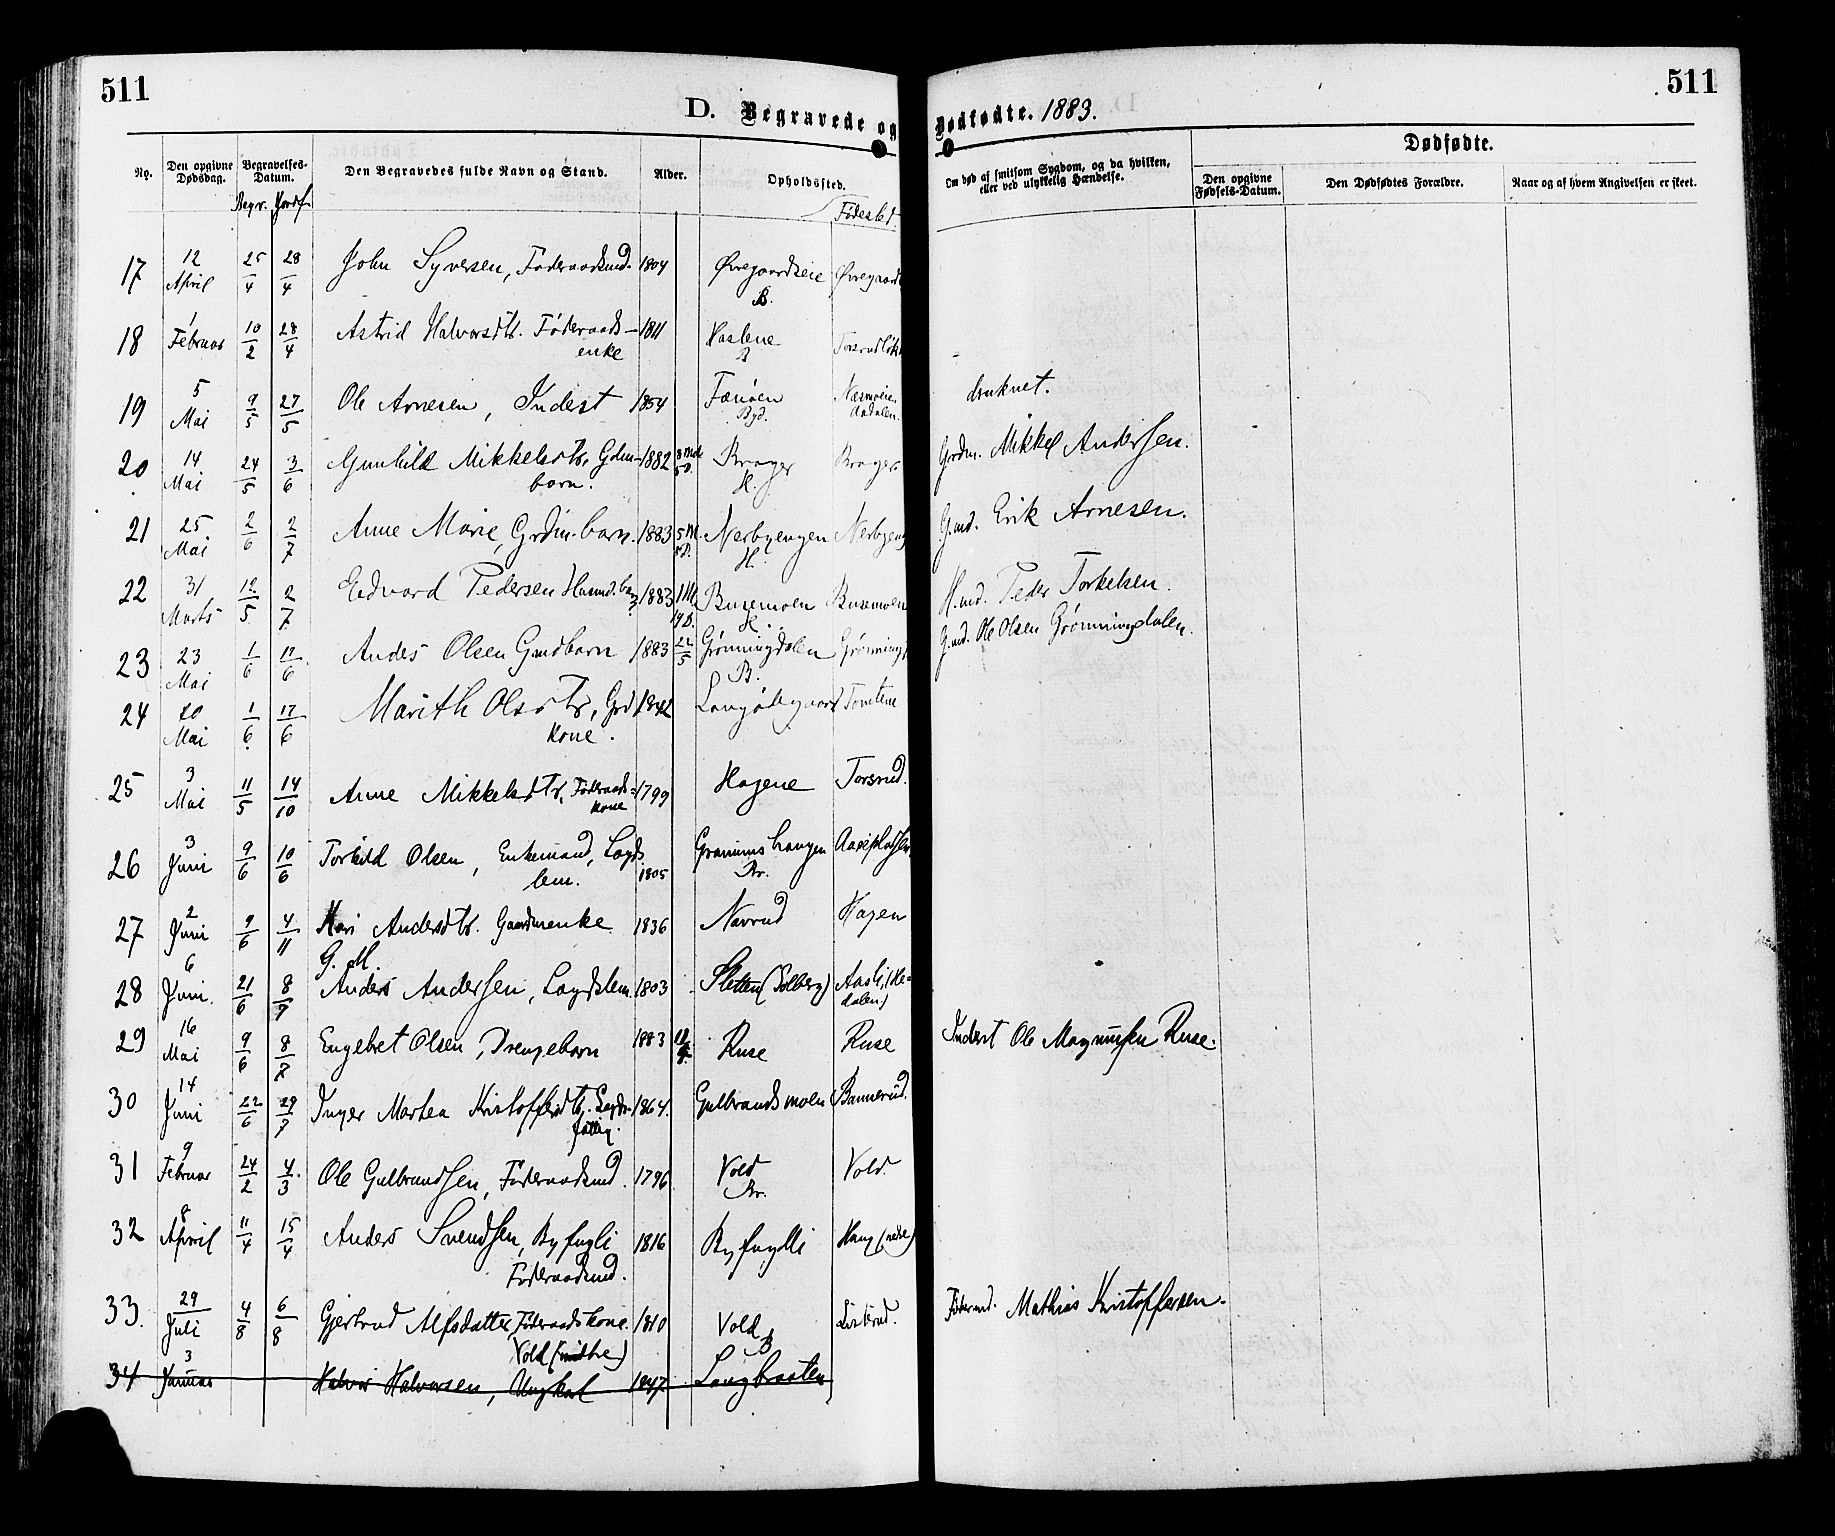 511
D. Begravede og Dødfødte. 1883.
511
No.
Den opgivne Dødsdag.
Begravelses-Datum.
Begr. Jordf.
Den Begravedes fulde Navn og Stand.
Alder.
Opholdssted.
Fødested
Om død af smitsom Sygdom, og da hvilken, eller ved ulykkelig Hændelse.
Dødfødte.
Den opgivne Fødsels-Datum.
Den Dødfødtes Forældre.
Naar og af hvem Angivelsen er skeet.
17 12 April 25/4 28/4 John Syversen, Føderaadsmd. 1804 Øvregaardseie B. Øvregaards
18 1 Februar 10/2 28/4 Astrid Halvorsdtr. Føderaads- 1811 Haslene B Torsrudløk
enke
19 5 Mai 9/5 27/5 Ole Arnesen, Inderst 1854 Fønøen Byd. Næsmoeie
dødalen. druknet.
20 14 Mai 24/5 3/6 Gunhild Mikkelsdtr, Gdm- 1882 8 Md 5D. Brager H. Brager Grdm. Mikkel Andersen.
barn.
21 25 Mai 2/6 2/7 Anne Marie, Grdm. barn. 1883 5 M. Nerbyengen H. Nerbyeng G.md. Erik Arnesen.
22 31 Marts 12/5 2/7 Edvard Pedersen Husmd.barn 1883 1 M. 14 D. Busemoen H. Busemoen H.md. Peder Torkelsen.
23 23 Mai 1/6 17/6 Andes Olsen Gmdbarn 1883 22/5 Grønningdalen B. Grønning G.md. Ole Olsen Grønningdalen.
24 20 Mai 1/6 17/6 Marith Olsdtr, Grd 1842 Langødegaard Tomtene
kone.
25 3 Mai 11/5 14/10 Anne Mikkelsdtr, Føderaads= 1799 Hagene Torsrud.
kone
26 3 Juni 9/6 10/6 Torkild Olsen, Enkemand, Lægds 1805 Gramms haugen Br. Aasepladsen
lem.
27 2 Juni 9/6 4/11 Kari Andersdtr. Gaardmenke 1836 Navrud Hagen
G. M.
28 6 Juni. 21/6 8/9 Anders Andersen, Lægdslem 1803 Sletten (Solberg) Aasli, (He=
dalen)
29 16 Mai 9/6 8/7 Engebret Olsen, Drengebarn 1883 Ruse Ruse Inderst Ole Magnussen Ruse.
30 14 Juni 22/6 29/7 Inger Martea Kristoffersdtr. Lægds- 1864. Gulbrandsmoen Bannerud.
fattig.
31 9 Februar 24/2 4/3 Ole Gulbrandsen, Føderaadsmd. 1796 Vold Br. Vold
32 8 April 11/4 15/4 Anders Svendsen, Byfugli 1816 Byfuglli Haug (nedre)
Føderaadsmd.
33. 29 Juli 4/8 6/8 Gjertrud Alfsdatter, Føderaadskone. 1810 Vold B Listerud. Fødermd. Mathias Kristoffersen.
Vold (midtre)
34 3 Januar Halvor Halvorsen, Ungkarl 1847. Langbraaten